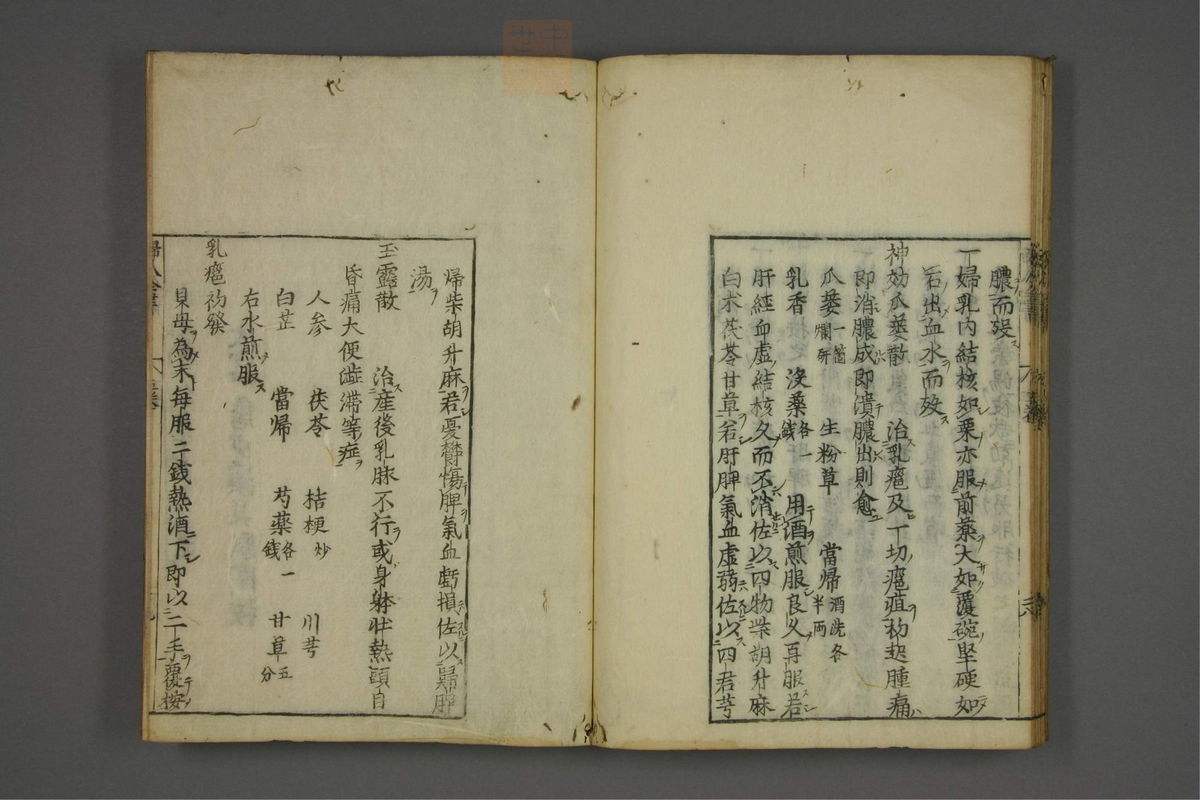 膿而效
一婦乳內結核如栗亦服前藥大如覆碗堅硬如
石出血水而效
神効瓜蔞散 治乳癰及一切癰疽初起腫痛
即消膿成即潰膿出則愈
瓜蔞一箇爛研 生粉草 當歸酒洗各半兩
乳香 沒藥各一錢 用酒煎服良久再服若
肝經血虛結核久而不消佐以四物柴胡升麻
白朮茯苓甘草若肝脾氣血虛弱佐以四君芎
歸柴胡升麻若憂鬱傷脾氣血虧損佐以歸脾
湯
玉露散 治產後乳脉不行或身躰壯熱頭目
昏痛大便澁滯等症
人参 茯苓 桔梗炒 川芎
白芷 當歸 芍藥各一錢 甘草五分
右水煎服
乳癰初發
貝母為末每服二錢熱酒下即以二手覆按